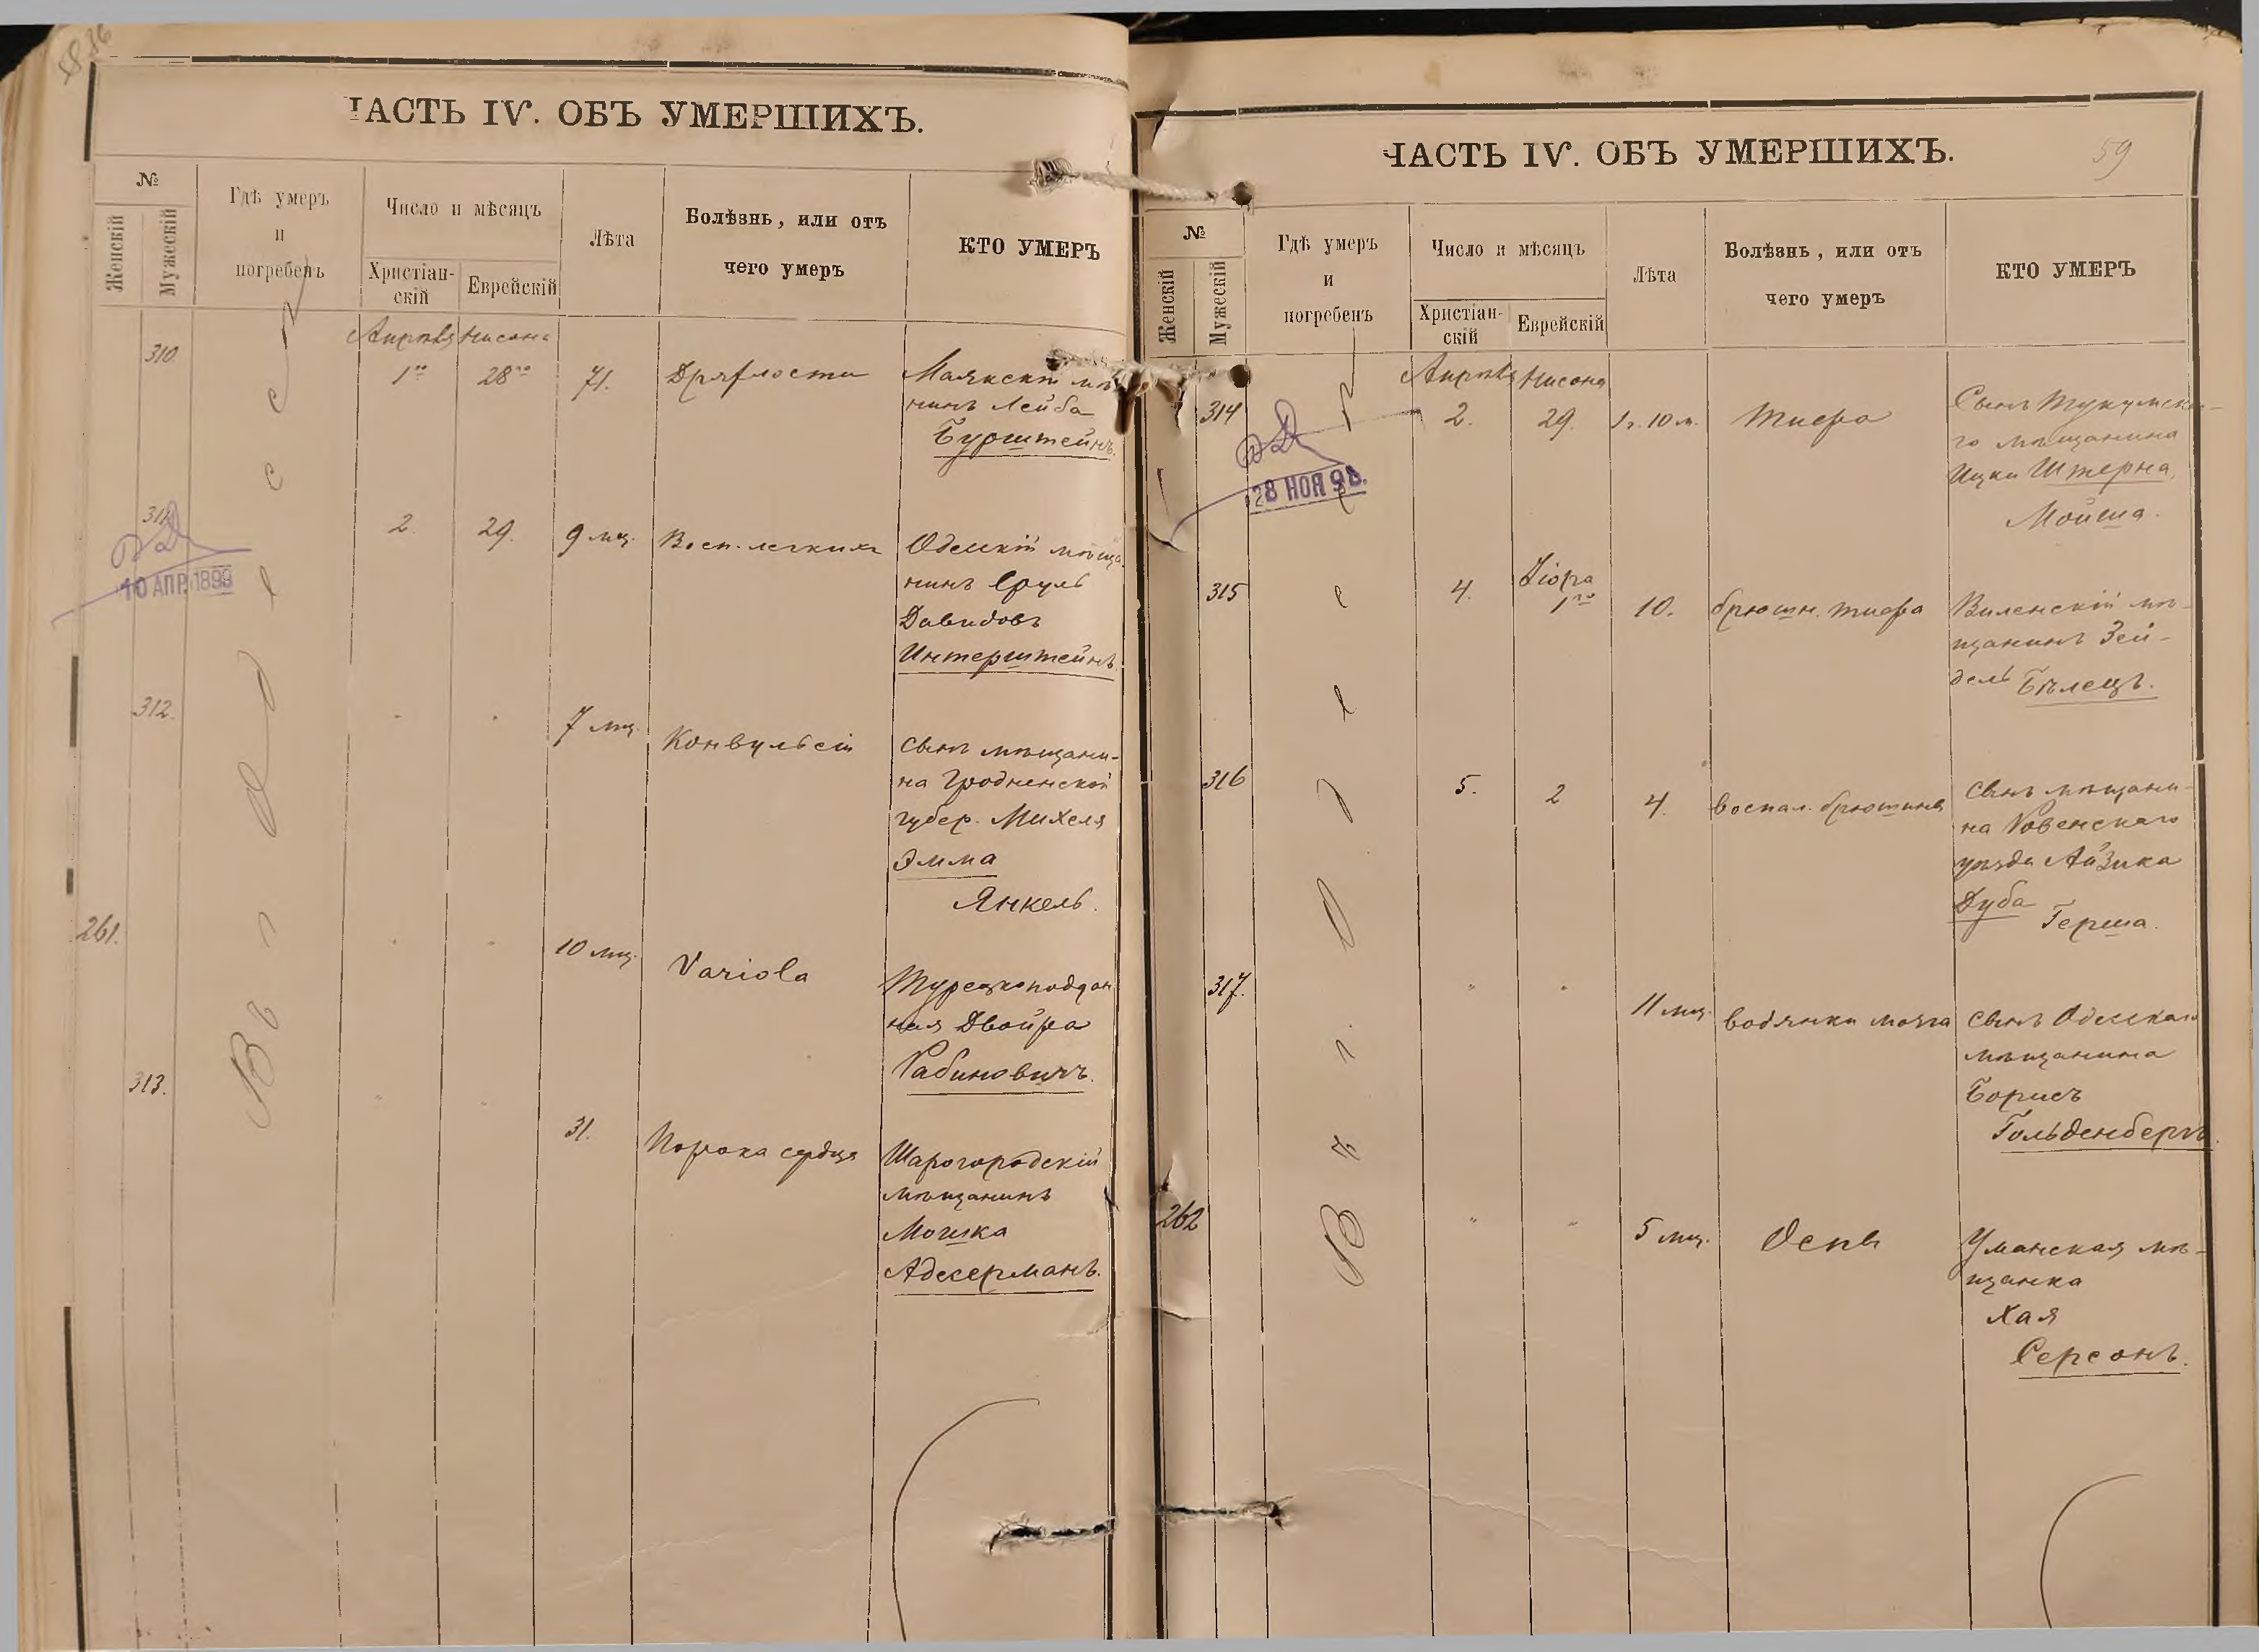 ЧАСТЬ IV. ОБЪ УМЕРШИХЪ.
№
Женскій
Мужескій
Гдѣ умеръ
и
погребенъ
Число и мѣсяцъ
Христіан-
скій
Еврейскій
Лѣта
Болѣзнь, или отъ
чего умеръ
КТО УМЕРЪ
Въ Одессѣ
Апрѣля Нисана
310. 1го 28го 71. Дряхлости Маякскій мѣ
нинъ Лейба
Бурштейнъ.
311. 2. 29. 9 мц. Восп. легкихъ Одесскій мѣща
нинъ Сруль
Давидовъ
Интерштейнъ.
10 АПР. 1899
312. " " 7 мц. Конвульсіи сынъ мѣщани-
на Гродненской
губер. Михеля
Эмма
Янкель.
261. " " 10 мц. Variola Турецкоподдан
ная Двойра
Рабиновичъ.
313. " " 31. Порока сердца Шарогородскій
мѣщанинъ
Мошка
Адесерманъ.
ЧАСТЬ IV. ОБЪ УМЕРШИХЪ.
59
№
Женскій
Мужескій
Гдѣ умеръ
и
погребенъ
Число и мѣсяцъ
Христіан-
скій
Еврейскій
Лѣта
Болѣзнь, или отъ
чего умеръ
КТО УМЕРЪ
Въ Одессѣ
Апрѣля Нисана
314 2. 29. 1 г. 10 м. Тифа Сынъ Тукумска-
го мѣщанина
Ицки Штерна,
Мойша.
28 НОЯ 98.
Ііора
315 4. 1го 10. брюшн. тифа Виленскій мѣ-
щанинъ Зей-
дель Бѣлецъ.
316 5. 2 4. воспал. брюшины сынъ мѣщани-
на Ровенскаго
уѣзда Айзика
Дуба
Герша.
317. " " 11 мц. водянки мозга сынъ Одесскаго
мѣщанина
Борисъ
Гольденбергъ.
262 " " 5 мц. Оспы Уманская мѣ-
щанка
Хая
Серсонъ.